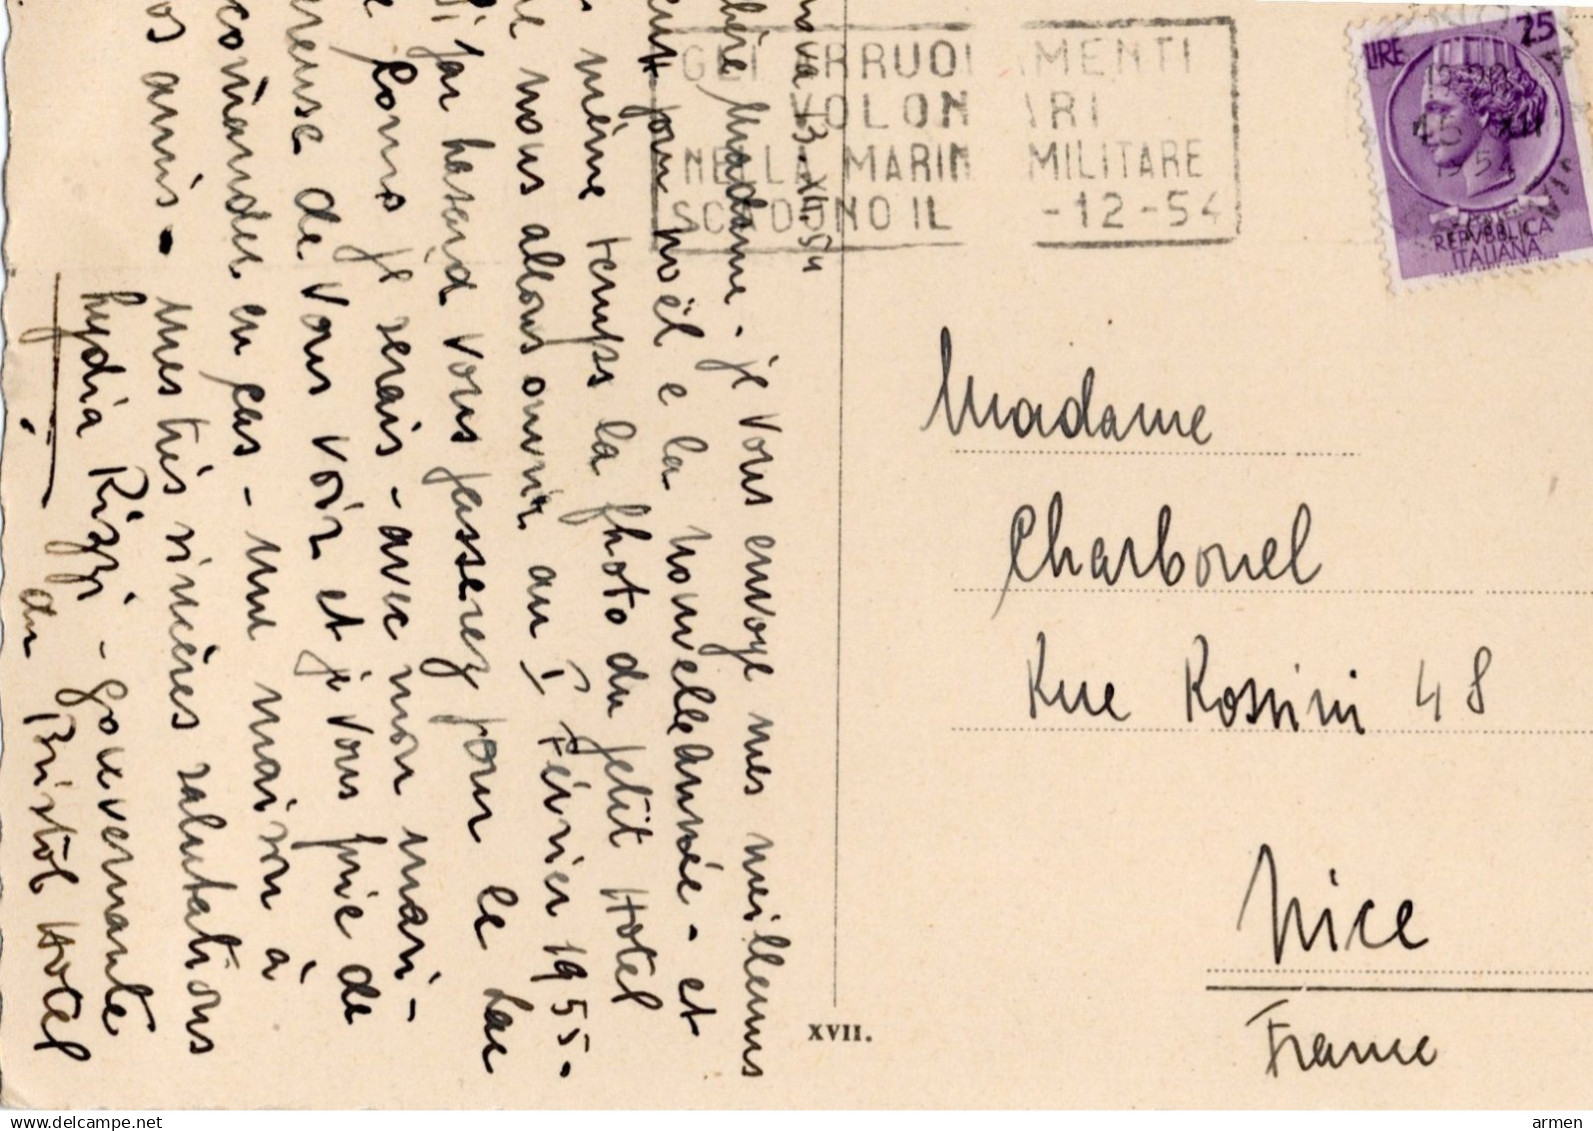 nova 13-XII.54
hère Madame. je vous envoye mes meilleurs
pour noël e la nouvelle année - et
même temps la photo du petit Hotel
e nous allons ouvrir au I Février 1955.
Si par hasard vous passerez pour le Lac
e Como je serais - avec mon mari -
reuse de vous voir et je vous prie de
comander en cas - une maison à
os amis - mes très sincères salutations
Lydia Rizzi - gouvernante
du Bristol Hotel
GLI ARRUOLAMENTI
VOLON ARI
NELLA MARIN MILITARE
SCADONO IL -12-54
LIRE 25
15 XII
1954
REPVBBLICA
ITALIANA
Madame
Charbonel
Rue Rossini 48
Nice
France
XVII.
armen